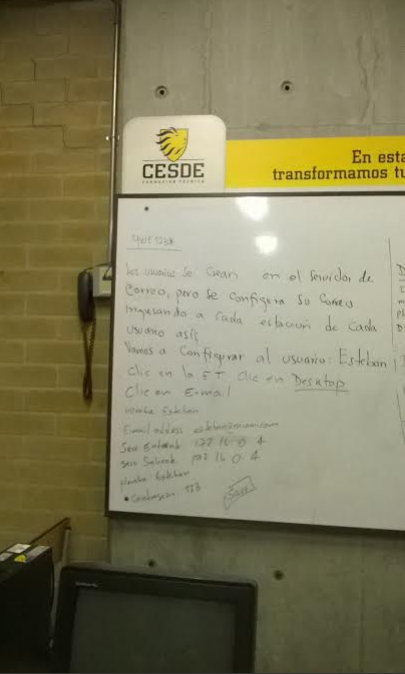 CESDE
FORMACIÓN TÉCNICA
En esta
transformamos tu
Los usuarios se crean en el servidor de
Correo, pero se configura su correo
ingresando a cada estación de cada
usuario así
Vamos a Configurar al usuario: Esteban
Clic en la ET. Clic en Desktop
Clic en E-mail
nombre Esteban
Email address
172 16 0 4
172 16 0 4
Nombre Esteban
Contraseña 123
Save